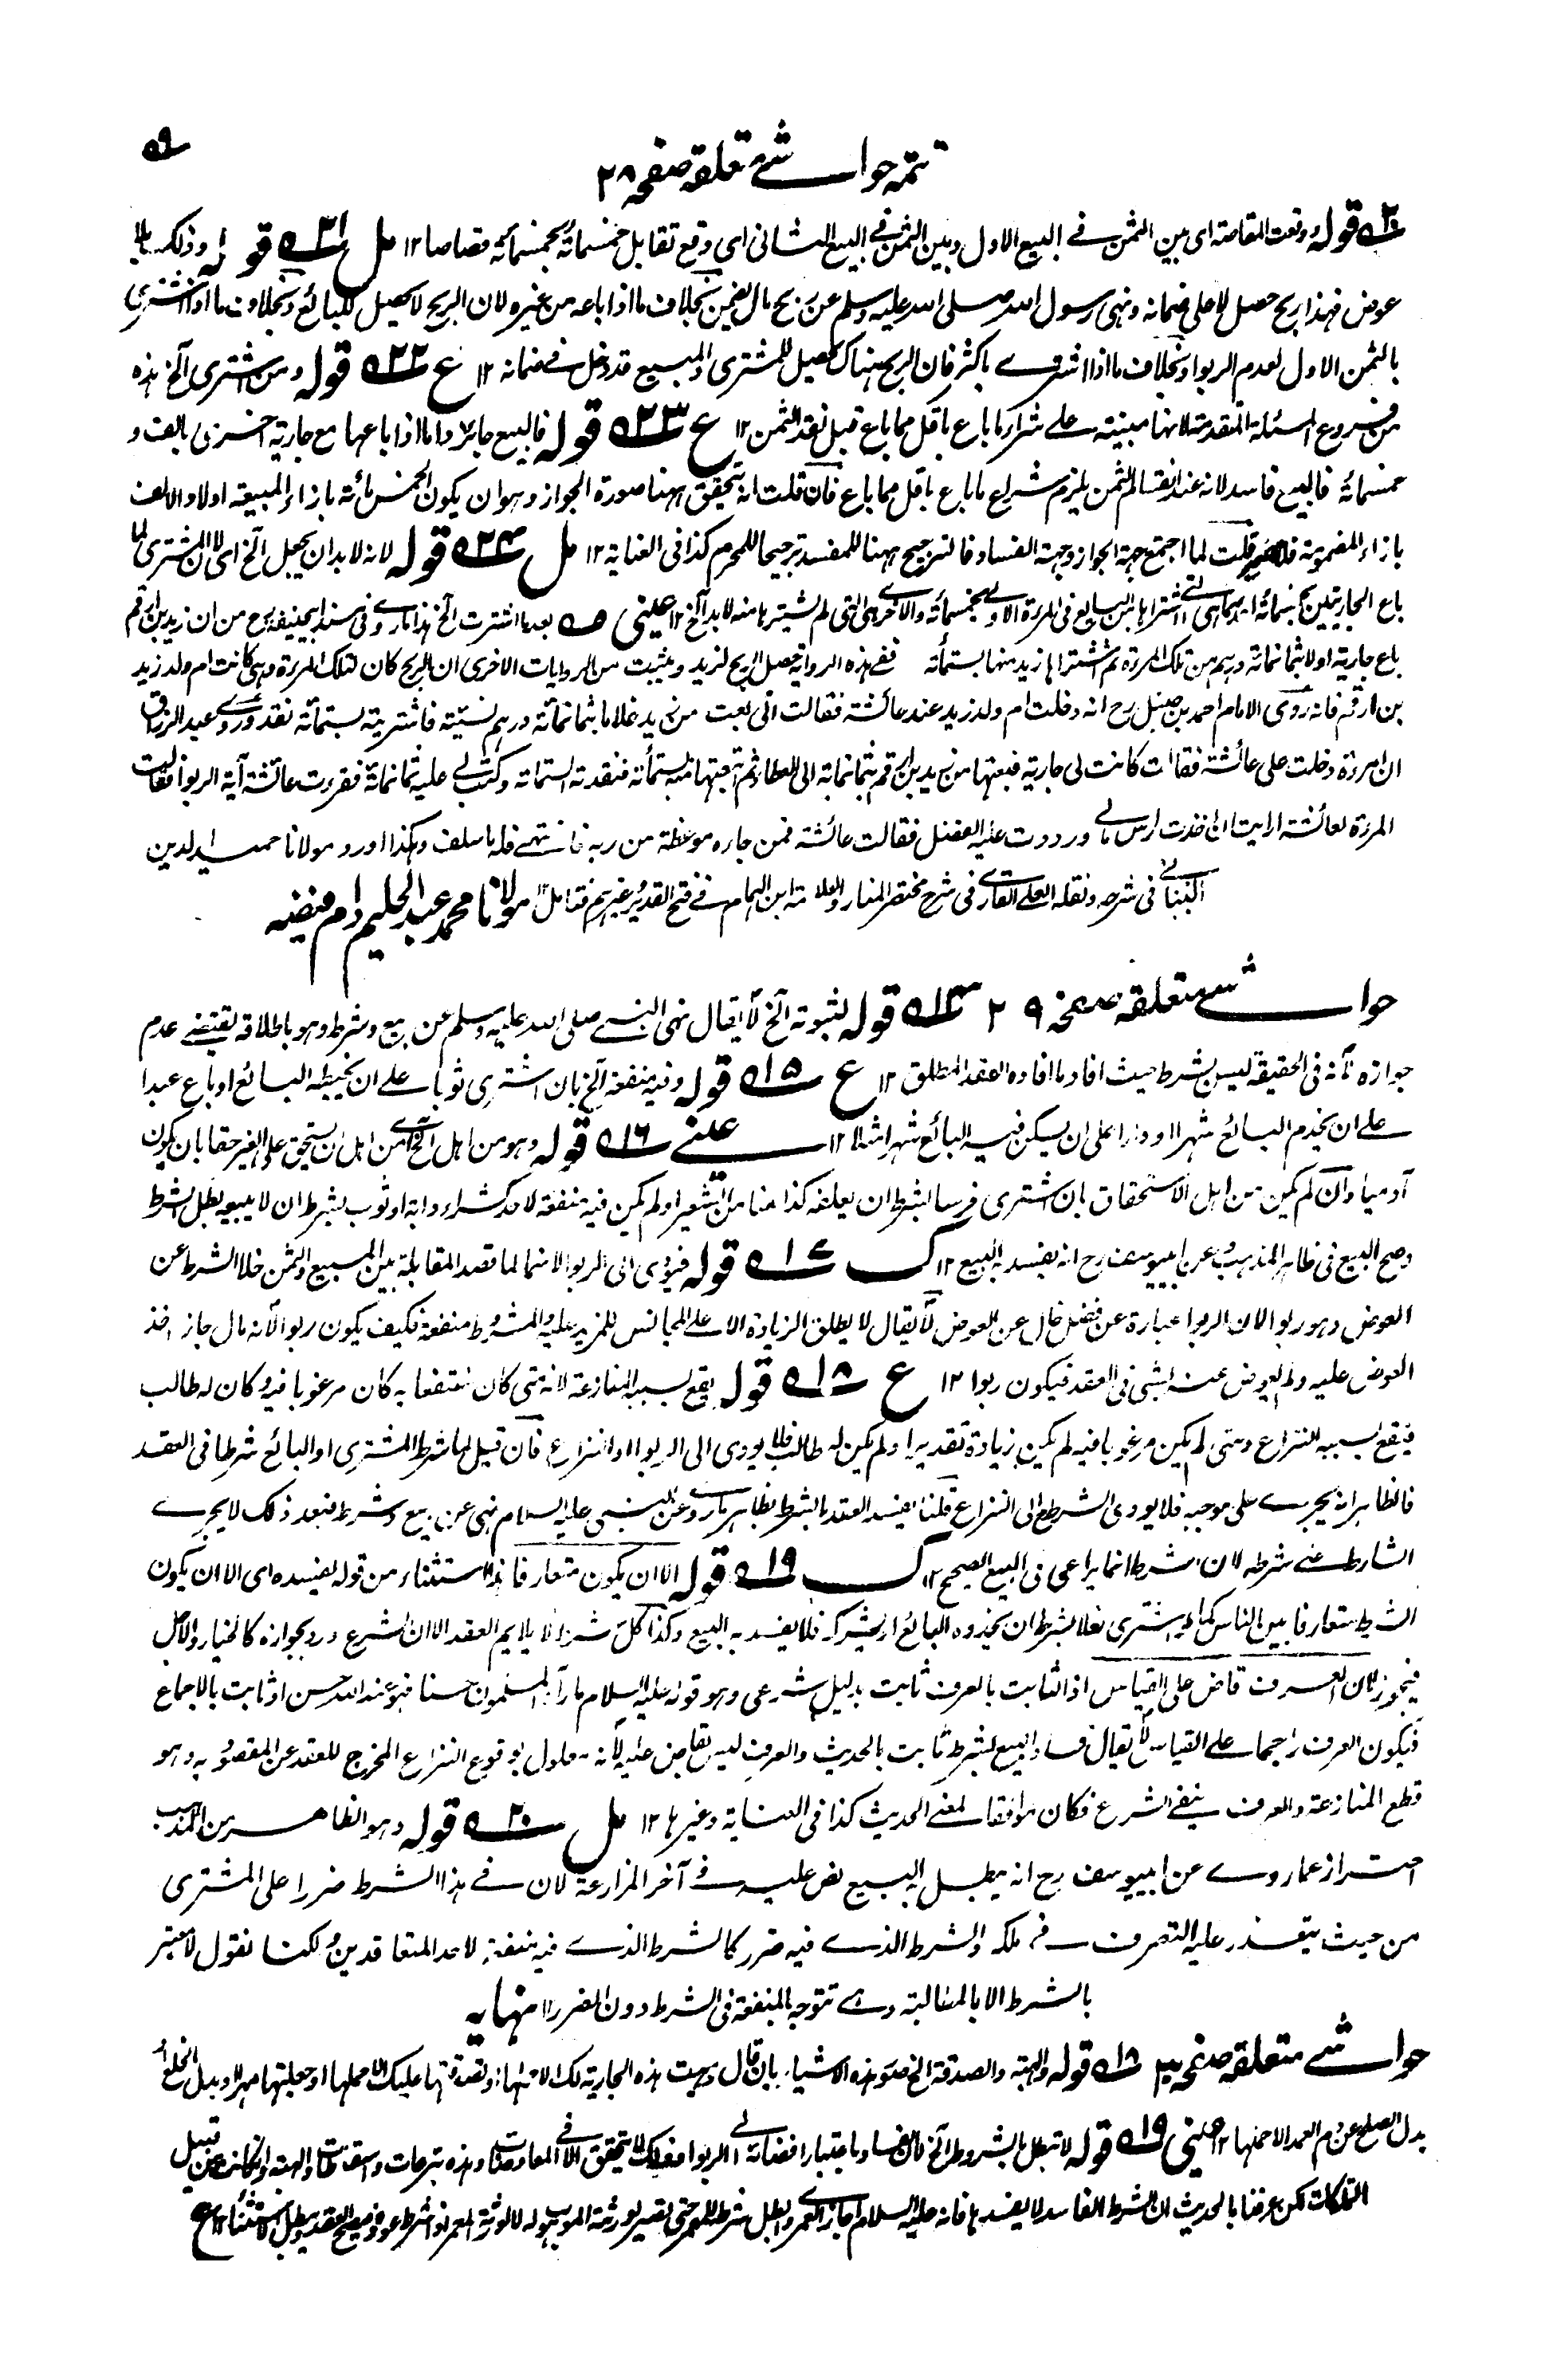 ۵۹
تتمہ حواشی متعلقہ صفحہ ۲۸
۲۰ قولہ ووقعت المقاصة ای بین الثمن فی البیع الاول وبین الثمن فی البیع الثانی ای وقع تقابل خمسمائة بخمسمائة قصاصا ۱۲ مل ۲۱ قولہ وذلک بلا
عوض فهذا ربح حصل لا علی ضمانه ونهی رسول الله صلی الله علیه وسلم عن ربح مالم یضمن بخلاف ما اذا باعه من غیره لان الربح لا یحصل للبائع وبخلاف ما اذا اشتری
بالثمن الاول لعدم الربوا وبخلاف ما اذا اشتری باکثر فان الربح هناک یحصل للمشتری والمبیع قد دخل فی ضمانه ۱۲ ع ۲۲ قوله ومن اشتری الخ هذه
من فروع المسئلة المتقدمة لانها مبنیة علی شراء ما باع باقل مما باع قبل نقد الثمن ۱۲ ع ۲۳ قوله فالبیع جائز واما اذا باعها مع جاریة اخری بالف و
خمسمائة فالبیع فاسد لانه عند انقسام الثمن یلزم شراء ما باع باقل مما باع فان قلت انه یتحقق ههنا صورة الجواز وهو ان یکون الخمس مائة بازاء المبیعة اولا والالف
بازاء المضمومة قلت لما اجتمع جهة الجواز وجهة الفساد فالترجیح ههنا للمفسد ترجیحا للمحرم کذا فی العنایة ۱۲ مل ۲۴ قوله لانه لا بد ان یجعل الخ ای لان المشتری لما
باع الجاریتین بخمسمائة احدهما هی التی اشتراها من البائع فی المرة الاولی بخمسمائة والاخری هی التی لم یشترها منه لا بد الخ ۱۲ عینی بعد ما اشترت الخ هذا ما روی فی مسند ابیحنیفة رح من ان زید بن ارقم
باع جاریة اولا بثمانمائة درهم من تلک المرءة ثم اشتراها زید منها بستمائة ففی هذه الروایة حصل الربح لزید ویثبت من الروایات الاخری ان الربح کان لتلک المرءة وهی کانت ام ولد زید
بن ارقم فانه روی الامام احمد بن حنبل رح انه دخلت ام ولد زید عند عائشة فقالت انی بعت من زید غلاما بثمانمائة درهم نسئیة فاشتریته بستمائة نقدا وروی عبد الرزاق
ان امرءة دخلت علی عائشة فقالت کانت لی جاریة فبعتها من زید بن ارقم بثمانمائة الی العطاء ثم ابتعتها منه بستمائة فنقدته الستمائة وکتب لی علیه ثمانمائة فقرءت عائشة آیة الربوا فقالت
المرءة لعائشة ارایت ان اخذت راس مالی ورددت علیه الفضل فقالت عائشة فمن جاءه موعظة من ربه فانتهی فله ما سلف وهکذا اورد مولانا حمید الدین
فی شرحه ونقله العلی القاری فی شرح مختصر المنار والعلامة ابن الهمام فی فتح القدیر وغیرهم فتامل ۱۲ مولانا محمد عبد الحلیم دام فیضه
حواشی متعلقہ صفحہ ۲۹ ۱۴ قوله لثبوته الخ لا یقال نهی النبی صلی الله علیه وسلم عن بیع وشرط وهو باطلاقه یقتضی عدم
جوازه لانه فی الحقیقة لیس بشرط حیث افاد ما افاده العقد المطلق ۱۲ ع ۱۵ قوله وفیه منفعة الخ بان اشتری ثوبا علی ان یخیطه البائع او باع عبدا
علی ان یخدم البائع شهرا او دارا علی ان یسکن فیه البائع شهرا مثلا ۱۲ عینی ۱۶ قوله وهو من اهل الخ ای من اهل ان یستحق علی الغیر حقا بان یکون
آدمیا وان لم یکن من اهل الاستحقاق بان اشتری فرسا بشرط ان یعلفه کذا منا من الشعیر او لم یکن فیه منفعة لاحد کشراء دابة او ثوب بشرط ان لا یبیعه بطل الشرط
وصح البیع فی ظاهر المذهب وعن ابیوسف رح انه یفسد به البیع ۱۲ ک ۱۷ قوله فیؤدی الی الربوا لانهما لما قصد المقابلة بین المبیع والثمن خلا الشرط عن
العوض وهو ربوا لان الربوا عبارة عن فضل خال عن العوض لا یقال لا یطلق الزیادة الا علی المجانس للمزید علیه والمشروط منفعة فکیف یکون ربوا لانه مال جاز اخذ
العوض علیه ولم یعوض عنه بشئ فی العقد فیکون ربوا ۱۲ ع ۱۸ قوله یقع بسببه المنازعة لانه متی کان منتفعا به کان مرغوبا فیه وکان له طالب
فیقع بسببه النزاع ومتی لم یکن مرغوبا فیه لم یکن زیادة تقدیرا ولم یکن له طالب فلا یودی الی الربوا او النزاع فان قیل لما شرط المشتری او البائع شرطا فی العقد
فالظاهر انه یجری علی موجبه فلا یودی الشرط الی النزاع قلنا یفسد العقد بالشرط بظاهر ما روی عن النبی علیه السلام نهی عن بیع وشرط فبعد ذلک لا یجری
الشارط علی شرطه لان الشرط انما یراعی فی البیع الصحیح ۱۲ ک ۱۹ قوله الا ان یکون متعارفا هذا استثناء من قوله یفسده ای الا ان یکون
الشرط متعارفا بین الناس کما لو اشتری نعلا بشرط ان یحذوه البائع او یشرکه فلا یفسد به البیع وکذا کل شرط لا یلایم العقد الا ان الشرع ورد بجوازه کالخیار والاجل
فیجوز لان العرف قاض علی القیاس اذ الثابت بالعرف ثابت بدلیل شرعی وهو قوله علیه السلام ما رآه المسلمون حسنا فهو عند الله حسن او ثابت بالاجماع
فیکون العرف راجحا علی القیاس لا یقال فساد البیع بشرط ثابت بالحدیث والعرف لیس بقاض علیه لانه معلول بوقوع النزاع المخرج للعقد عن المقصود به وهو
قطع المنازعة والعرف ینفی النزاع فکان موافقا لمعنی الحدیث کذا فی العنایة وغیرها ۱۲ مل ۲۰ قوله وهو الظاهر من المذهب
احتراز عما روی عن ابیوسف رح انه یبطل به البیع نص علیه فی آخر المزارعة لان فی هذا الشرط ضررا علی المشتری
من حیث یتعذر علیه التصرف فی ملکه والشرط الذی فیه ضرر کالشرط الذی فیه منفعة لاحد المتعاقدین ولکنا نقول لا معتبر
بالشرط الا بالمطالبة وهی تتوجه بالمنفعة فی الشرط دون الضرر ۱۲ نهایه
حواشی متعلقہ صفحہ ۳۰ ۱۸ قوله والهبة والصدقة الخ صورة هذه الاشیاء بان قال وهبت هذه الجاریة لک الا حملها او تصدقتها علیک الا حملها او جعلتها مهرا او بدل الخلع او
بدل الصلح عن دم العمد الا حملها ۱۲ عینی ۱۹ قوله لا تبطل بالشروط الخ لان الفساد باعتبار افضائه الی الربوا وذلک لا یتحقق الا فی المعاوضات وهذه تبرعات واسقاطات والهبة وان کانت من قبیل
التملیکات لکن عرفنا بالحدیث ان الشرط الفاسد لا یفسدها فانه علیه السلام اجاز العمری وابطل شرط المعمر حتی تصیر لورثة الموهوب له لا لورثة المعمر